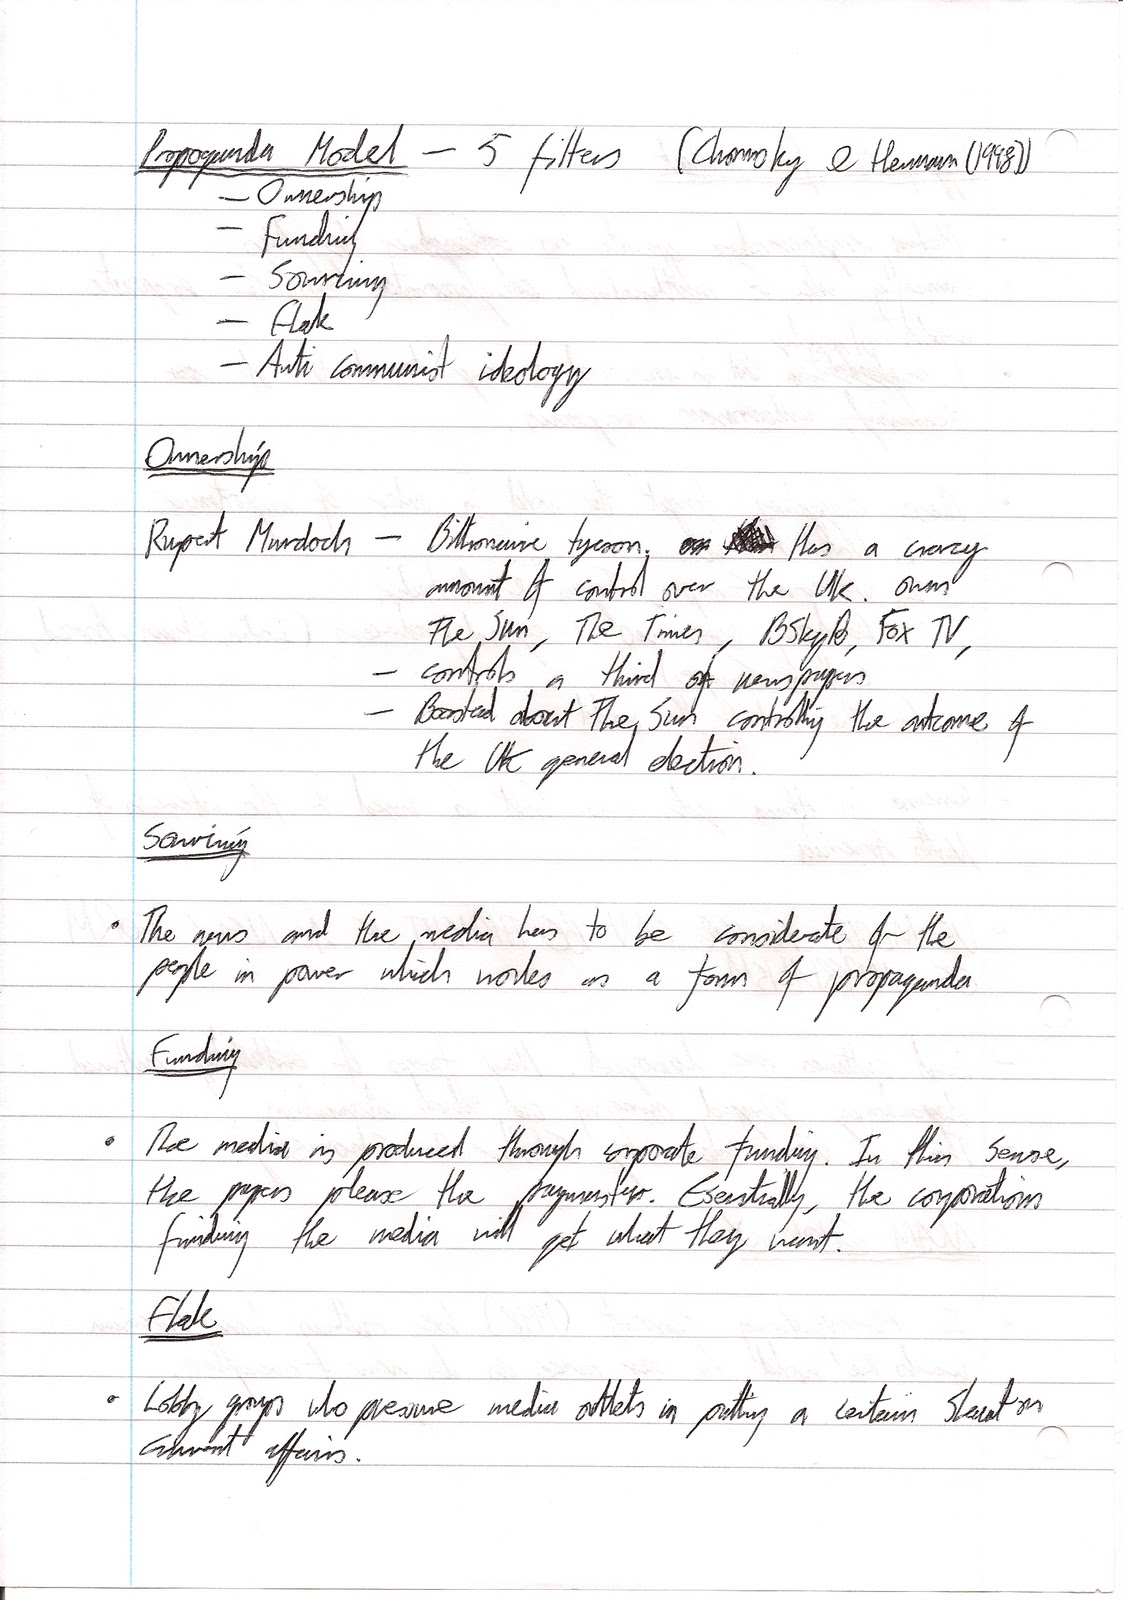 Propoganda Model — 5 filters (Chomsky & Herman (1998))
— Ownership
— Funding
— Sourcing
— Flak
— Anti communist ideology
Ownership
Rupert Murdoch — Billionaire tycoon. Has a crazy
amount of control over the UK. owns
The Sun, The Times, BSkyB, Fox TV,
— controls a third of newspapers
— Boasted about The Sun controlling the outcome of
the UK general election.
Sourcing
• The news and the media has to be considerate of the
people in power which works as a form of propaganda
Funding
• The media is produced through corporate funding. In this sense,
the papers please the paymasters. Esentially, the corporations
funding the media will get what they want.
Flak
• Lobby groups who pressure media outlets in putting a certain slant on
current affairs.